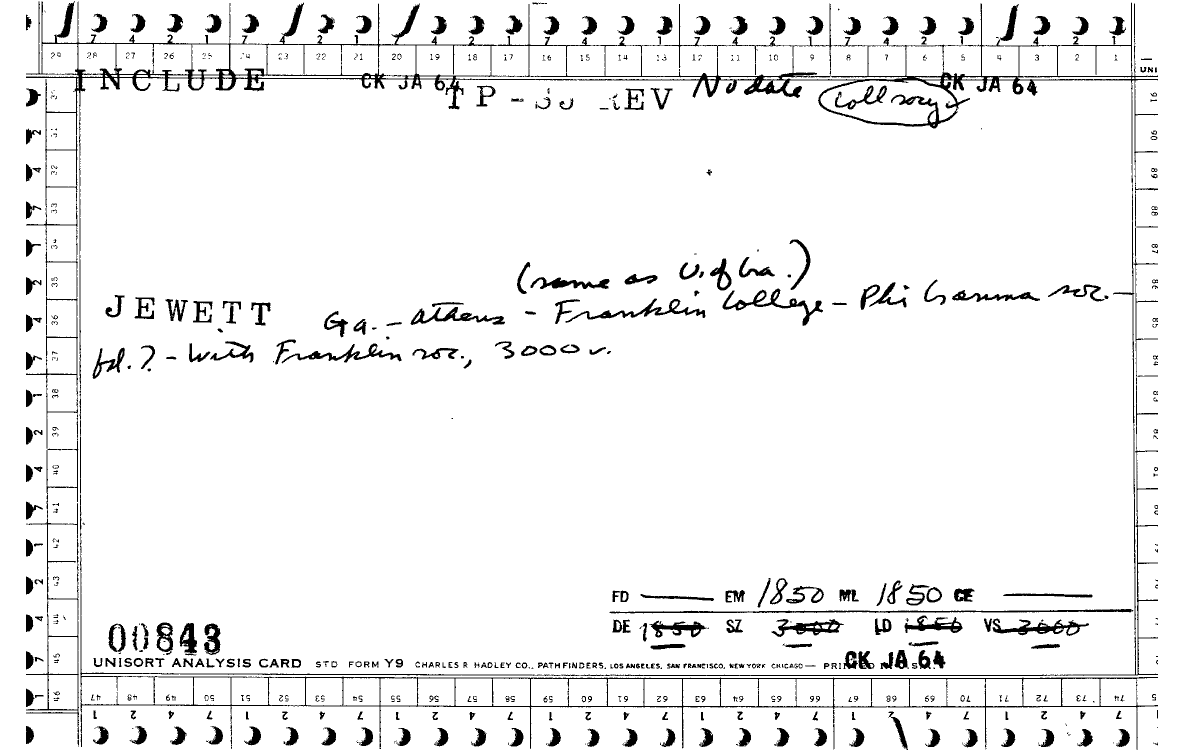 7 4 2 1 7 4 2 1 7 4 2 1 7 4 2 1 7 4 2 1 7 4 2 1 7 4 2 1
29 28 27 26 25 24 23 22 21 20 19 18 17 16 15 14 13 12 11 10 9 8 7 6 5 4 3 2 1
UNI
INCLUDE CK JA 64 TP - REV No date coll socy CK JA 64
(same as U. of Ga.)
JEWETT Ga. - Athens - Franklin College - Phi Gamma soc. -
fd. ? - With Franklin soc., 3000 v.
FD EM 1850 ML 1850 CE
DE 1850 SZ 3000 LD 1850 VS 3000
00843
UNISORT ANALYSIS CARD STD FORM Y9 CHARLES R HADLEY CO., PATHFINDERS, LOS ANGELES, SAN FRANCISCO, NEW YORK CHICAGO — PRINTED IN U.S.
CK JA 64
47 48 49 50 51 52 53 54 55 56 57 58 59 60 61 62 63 64 65 66 67 68 69 70 71 72 73 74
1 2 4 7 1 2 4 7 1 2 4 7 1 2 4 7 1 2 4 7 1 2 4 7 1 2 4 7